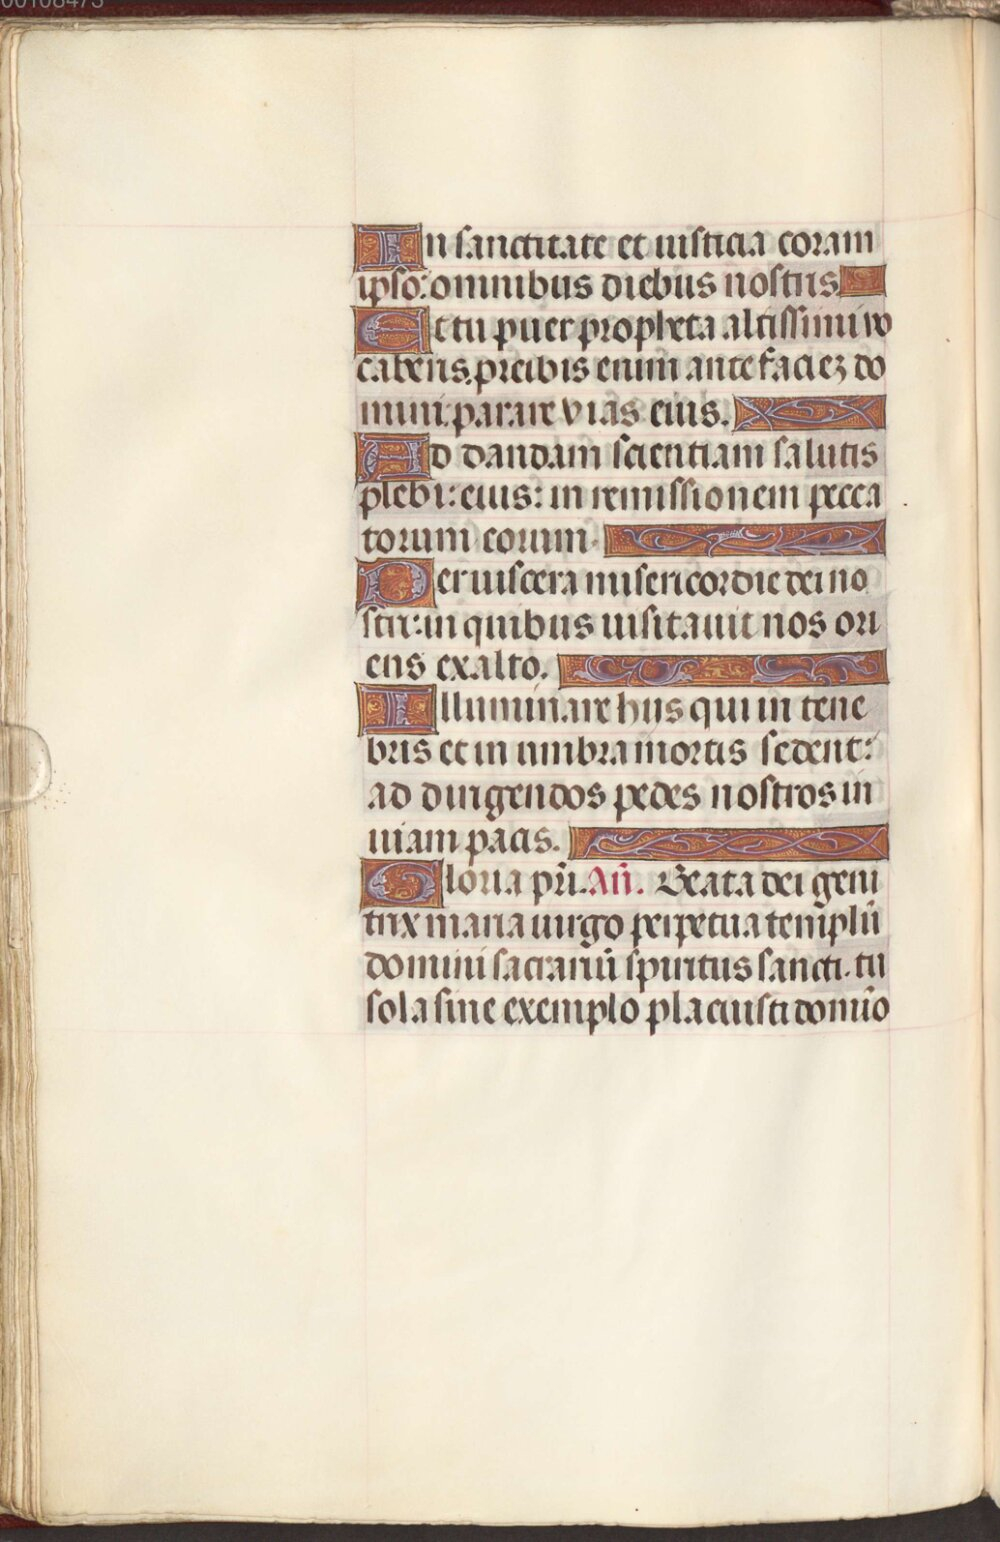 00108473
In sanctitate et iusticia coram
ipso: omnibus diebus nostris
Et tu puer propheta altissimi vo
caberis, preibis enim ante faciez do
mini: parare vias eius.
Ad dandam scientiam salutis
plebi: eius: in remissionem pecca
torum eorum.
Per uiscera misericordie dei no
stri: in quibus uisitauit nos ori
ens ex alto.
Illuminare hiis qui in tene
bris et in umbra mortis sedent:
ad dirigendos pedes nostros in
uiam pacis.
Gloria pr̄i. Añ. Beata dei geni
trix maria uirgo perpetua templū
domini sacrariū spiritus sancti. tu
sola sine exemplo placuisti domīo